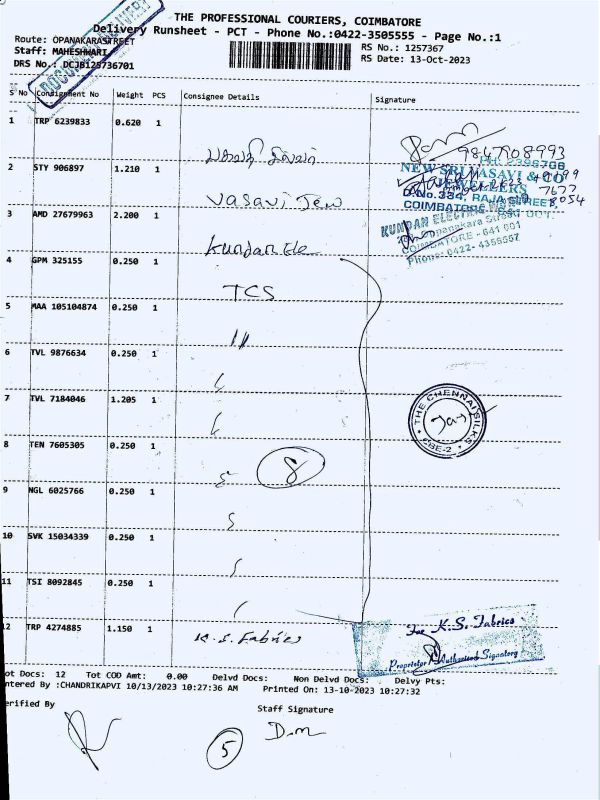 THE PROFESSIONAL COURIERS, COIMBATORE
Delivery Runsheet - PCT - Phone No.:0422-3505555 - Page No.:1
Route: OPANAKARASTREET
RS No.: 1257367
Staff: MAHESHWARI
RS Date: 13-Oct-2023
DRS No.: DCJB125736701
S No Consignment No Weight PCS Consignee Details Signature
1 TRP 6239833 0.620 1
9867908993
2 STY 906897 1.210 1 Vasavi Jew
PH: 2396706
NEW SRI VASAVI & CO
JEWELLERS
D.No.334, RAJA STREET
COIMBATORE - 641 001.
3 AMD 27679963 2.200 1 Kundan Ele
KUNDAN ELECTRIC
Oppanakara Street
COIMBATORE - 641 001
Phone: 0422- 4358557
4 GPM 325155 0.250 1 TCS
5 MAA 105104874 0.250 1 "
6 TVL 9876634 0.250 1
7 TVL 7184046 1.205 1
THE CHENNAI SILKS
CBE-2
8 TEN 7605305 0.250 1
8
9 NGL 6025766 0.250 1
10 SVK 15034339 0.250 1
11 TSI 8092845 0.250 1
12 TRP 4274885 1.150 1 K.S. Fabrics
For K.S. Fabrics
Proprietor / Authorised Signatory
ot Docs: 12 Tot COD Amt: 0.00 Delvd Docs: Non Delvd Docs: Delvy Pts:
ntered By :CHANDRIKAPVI 10/13/2023 10:27:36 AM Printed On: 13-10-2023 10:27:32
erified By Staff Signature
5